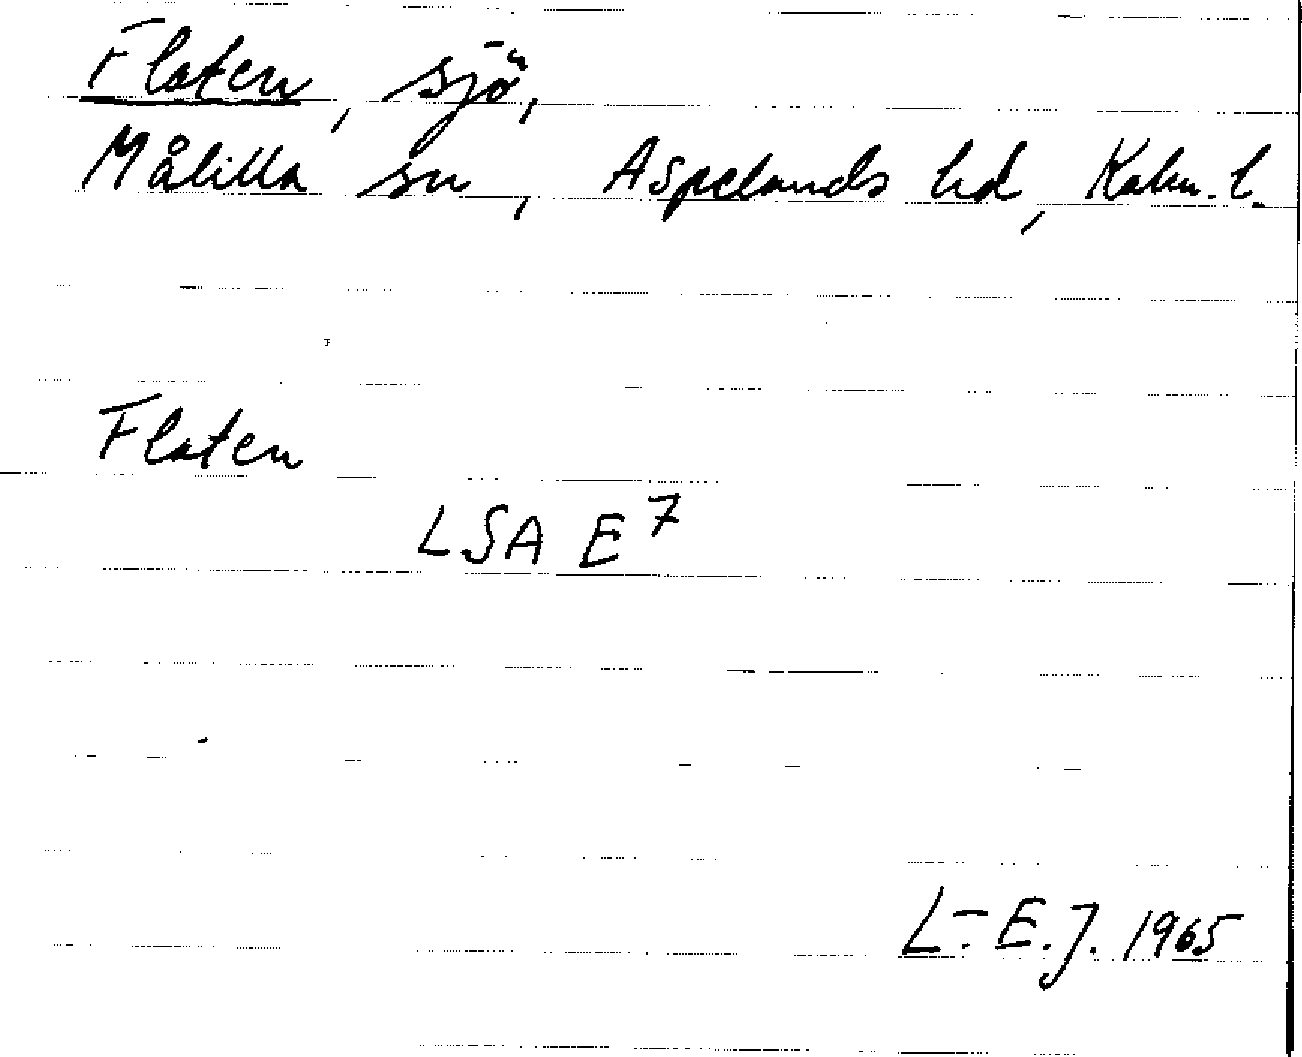 Flaten, sjö,
Målilla sn, Aspelands hd, Kalm. l.
Flaten
LSA E7
L.-E.J. 1965